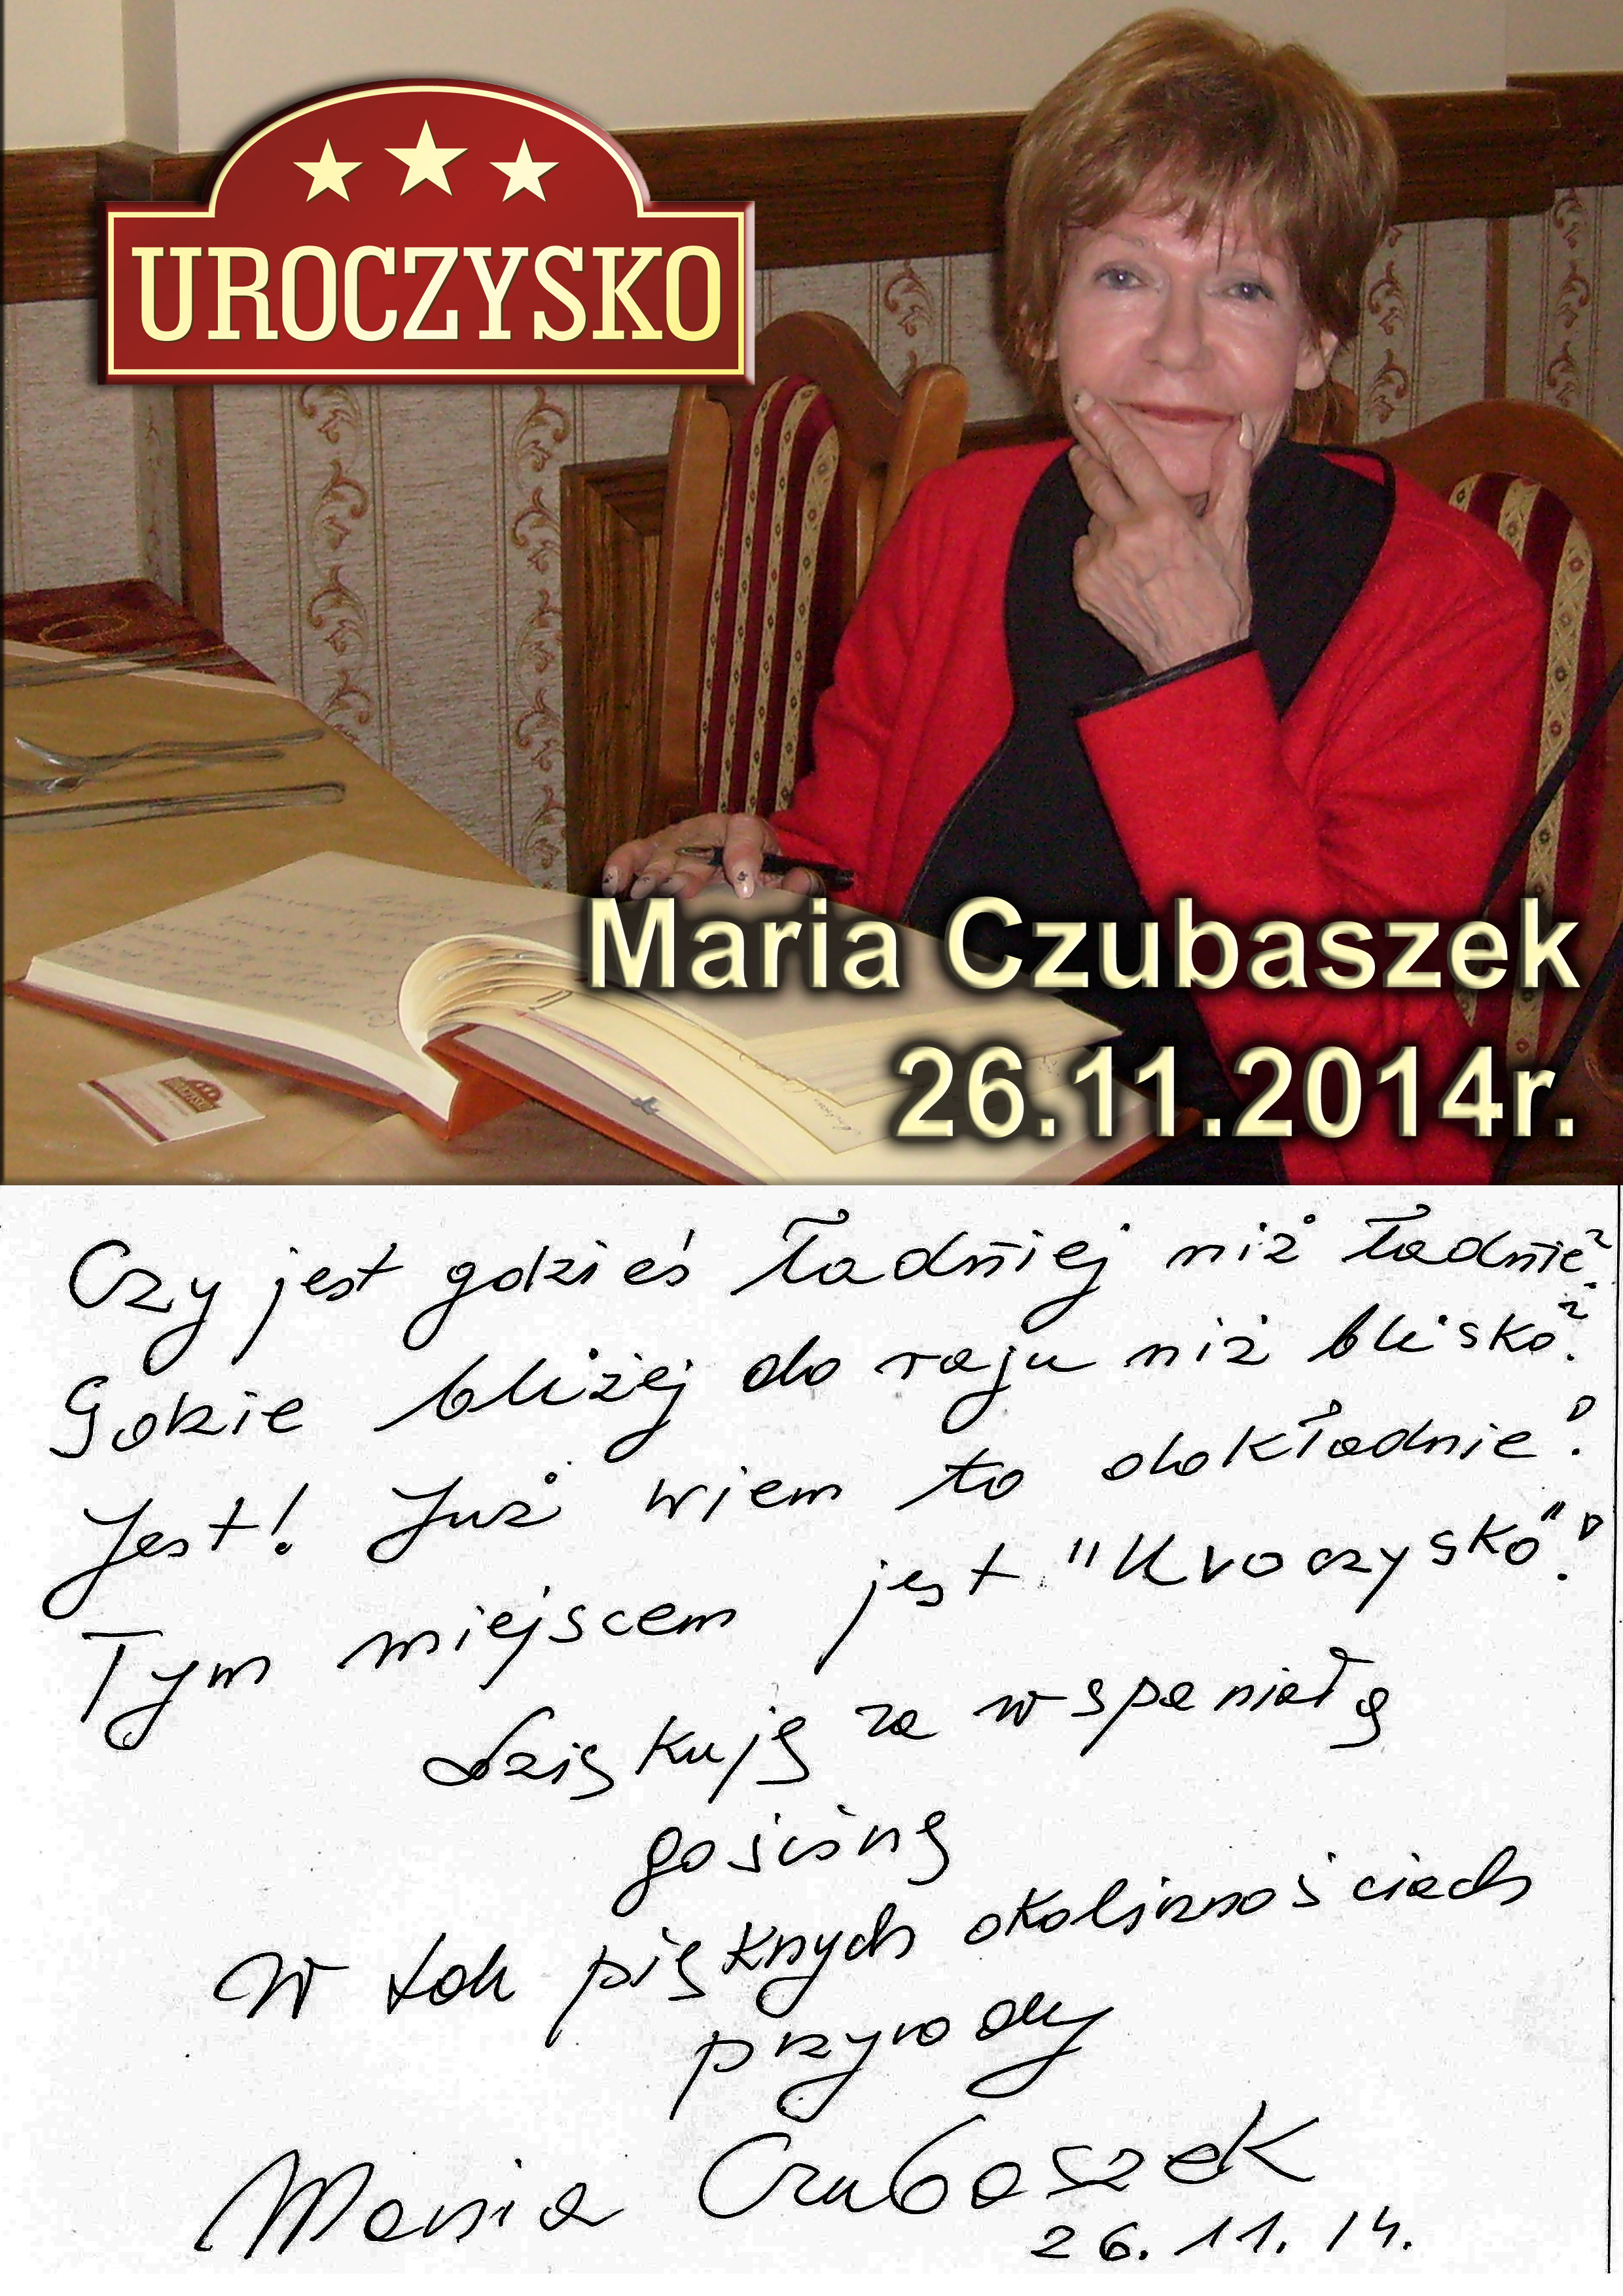 UROCZYSKO
Maria Czubaszek
26.11.2014r.
Czy jest gdzieś ładniej niż ładnie?
Gdzie bliżej do raju niż blisko?
Jest! Już wiem to dokładnie!
Tym miejscem jest "Uroczysko"!
Dziękuję za wspaniałą
gościnę
W tak pięknych okolicznościach
przyrody
Maria Czubaszek
26.11.14.